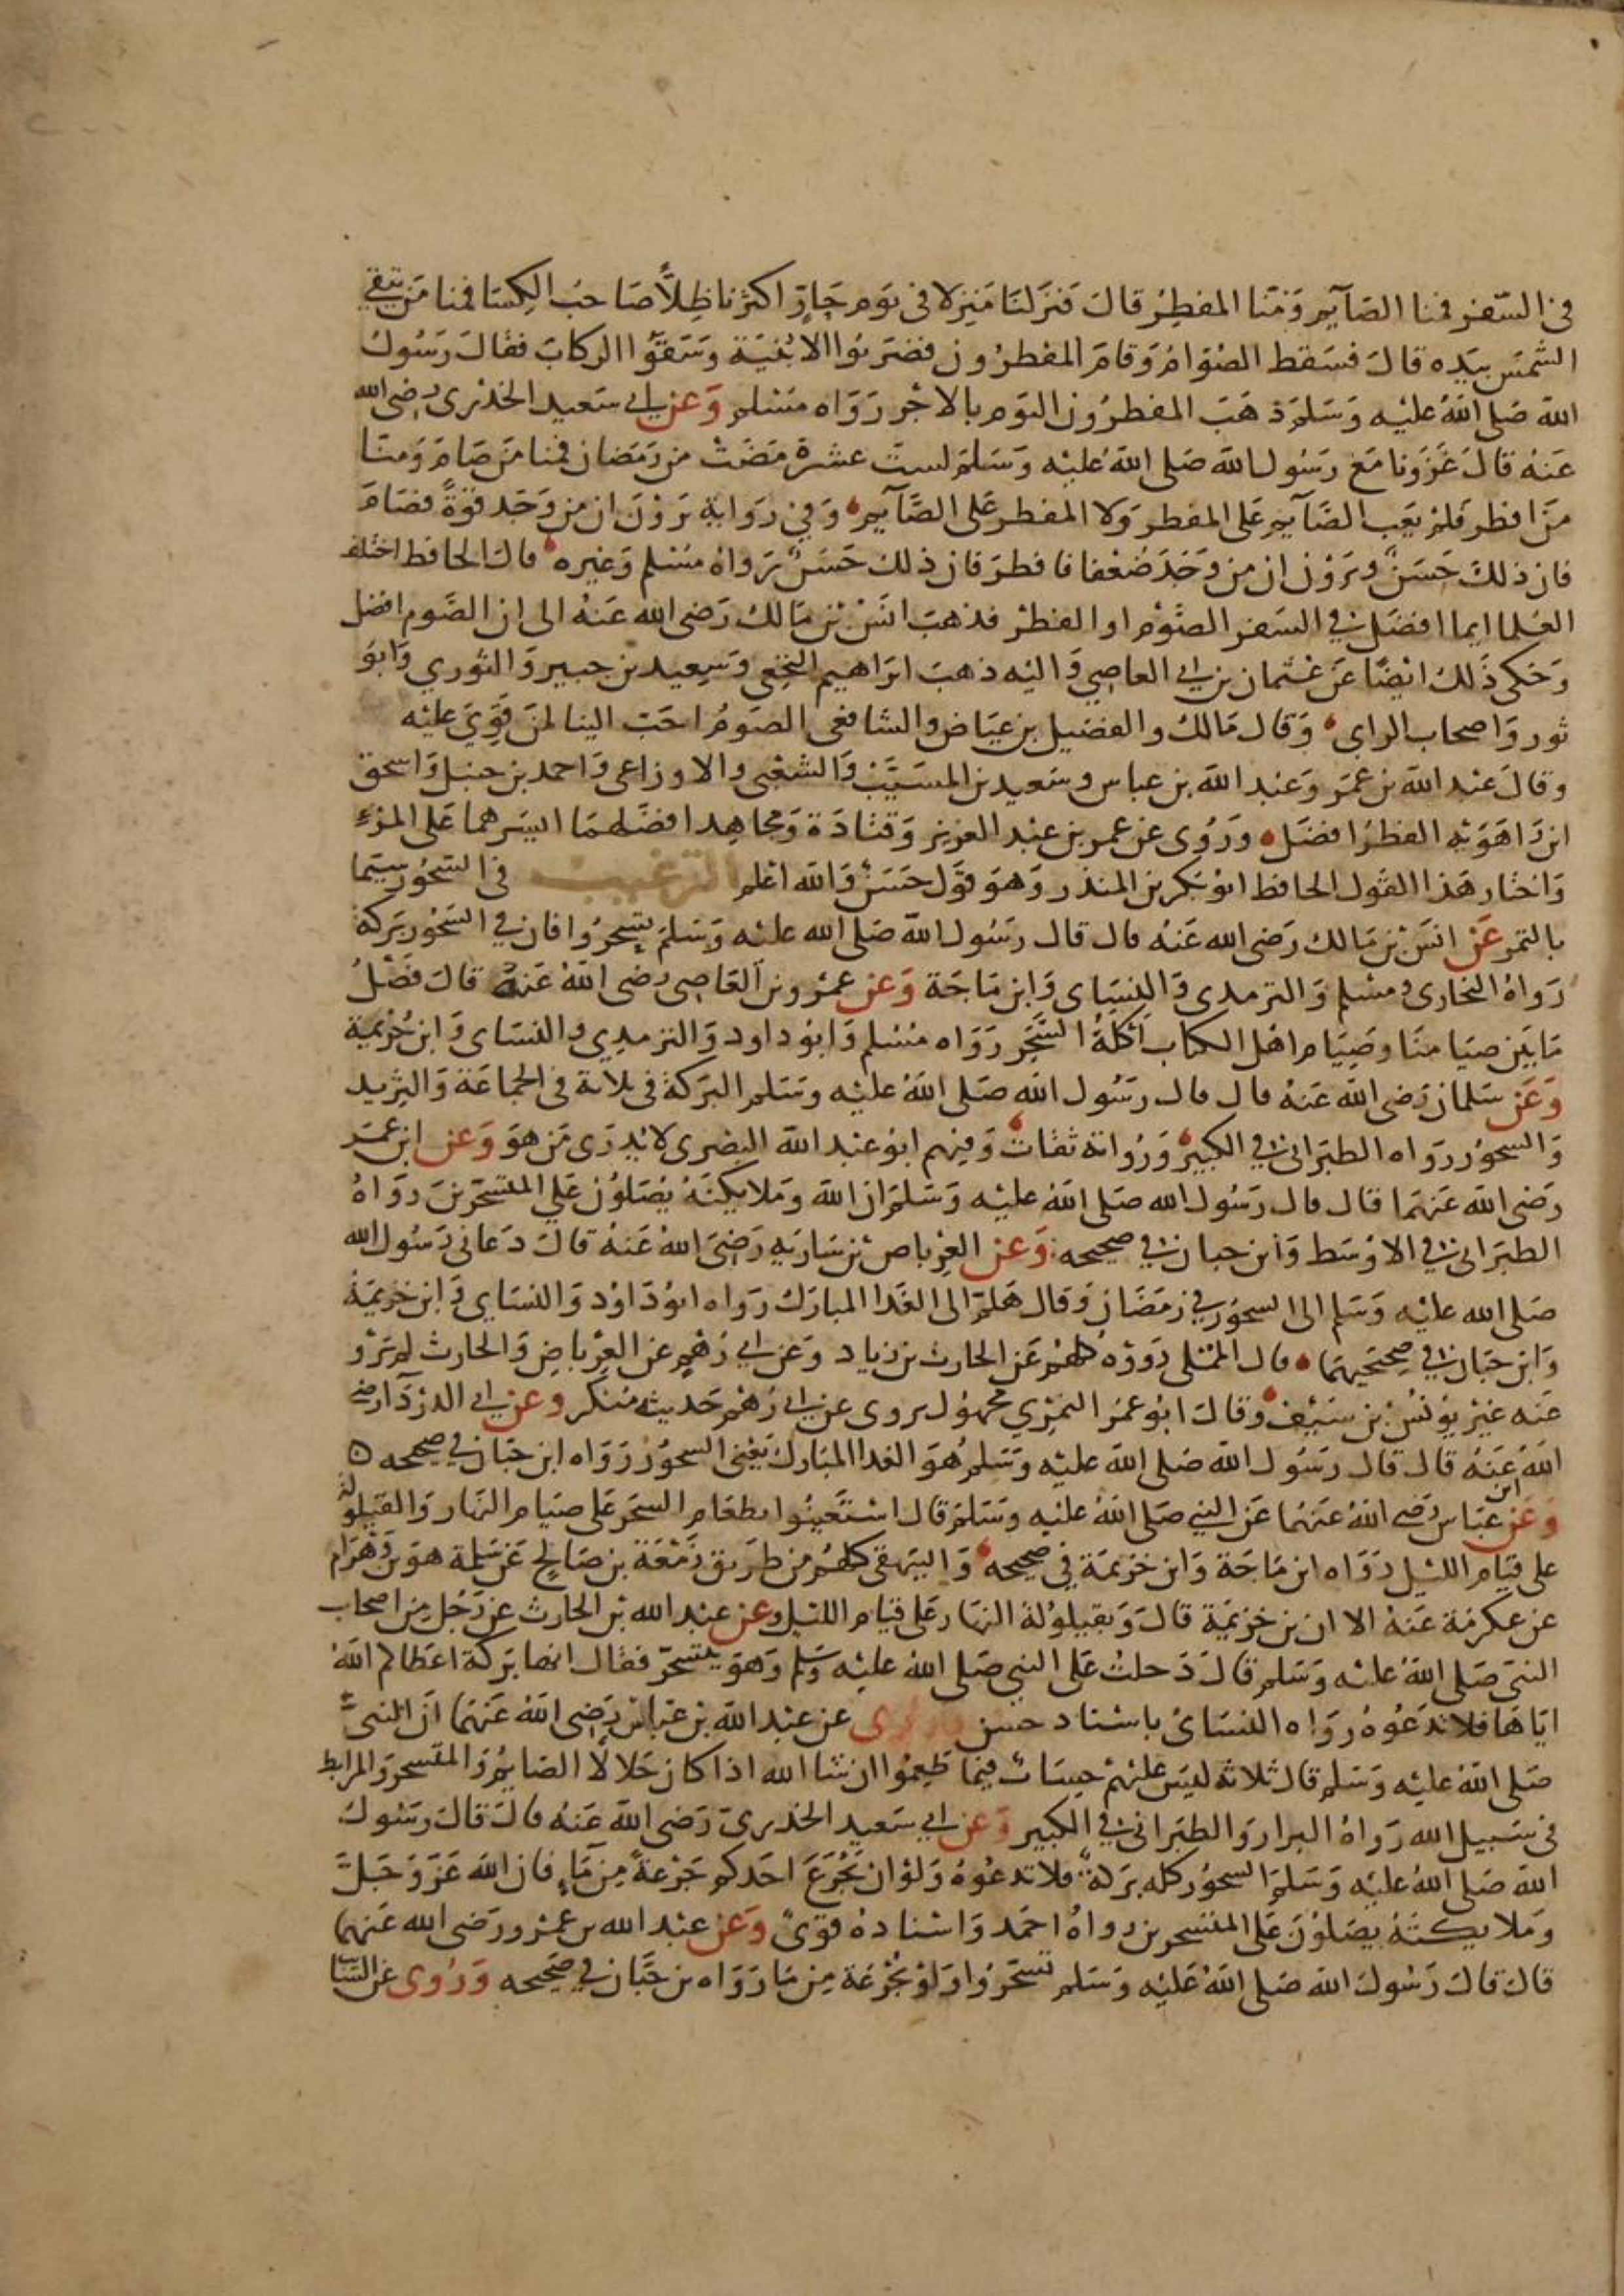 في السفر فمنا الصآيم ومنا المفطر قال فنزلنا منزلا في يوم حار اكثرنا ظلا صاحب الكسا فمنا من يتقي
الشمس بيده قال فسقط الصوام وقام المفطرون فضربوا الابنية وسقوا الركاب فقال رسول
الله صلى الله عليه وسلم ذهب المفطرون اليوم بالاجر رواه مسلم وعن ابي سعيد الخدري رضي الله
عنه قال غزونا مع رسول الله صلى الله عليه وسلم لست عشرة مضت من رمضان فمنا من صام ومنا
من افطر فلم يعب الصآيم على المفطر ولا المفطر على الصآيم وفي رواية يرون ان من وجد قوة فصام
فان ذلك حسن ويرون ان من وجد ضعفا فافطر فان ذلك حسن رواه مسلم وغيره قال الحافظ اختلف
العلما ايما افضل في السفر الصوم او الفطر فذهب انس بن مالك رضي الله عنه الى ان الصوم افضل
وحكى ذلك ايضا عن عثمان بن ابي العاصي واليه ذهب ابراهيم النخعي وسعيد بن جبير والثوري وابو
ثور واصحاب الراي وقال مالك والفضيل بن عياض والشافعي الصوم احب الينا لمن قوي عليه
وقال عبد الله بن عمر وعبد الله بن عباس وسعيد بن المسيب والشعبي والاوزاعي واحمد بن حنبل واسحق
ابن راهويه الفطر افضل وروي عن عمر بن عبد العزيز وقتادة ومجاهد افضلهما ايسرهما على المرء
واختار هذا القول الحافظ ابو بكر بن المنذر وهو قول حسن والله اعلم الترغيب في السحور سيما
بالتمر عن انس بن مالك رضي الله عنه قال قال رسول الله صلى الله عليه وسلم تسحروا فان في السحور بركة
رواه البخاري ومسلم والترمدي والنسياي وابن ماجة وعن عمرو بن العاصي رضي الله عنه قال فضل
ما بين صيامنا وصيام اهل الكتاب اكلة السحر رواه مسلم وابو داود والترمدي والنساي وابن خزيمة
وعن سلمان رضي الله عنه قال قال رسول الله صلى الله عليه وسلم البركة في ثلاثة في الجماعة والثريد
والسحور رواه الطبراني في الكبير ورواته ثقات وفيهم ابو عبد الله البصري لا يدرى من هو وعن ابن عمر
رضي الله عنهما قال قال رسول الله صلى الله عليه وسلم ان الله وملايكته يصلون على المتسحرين رواه
الطبراني في الاوسط وابن حبان في صحيحه وعن العرباض بن سارية رضي الله عنه قال دعاني رسول الله
صلى الله عليه وسلم الى السحور في رمضان وقال هلم الى الغدا المبارك رواه ابو داود والنساي وابن خزيمة
وابن حبان في صحيحيهما قال المملى رووه كلهم عن الحارث بن زياد وعن ابي رهم عن العرباض والحارث لم يرو
عنه غير يونس بن سيف وقال ابو عمر النمري مجهول يروى عن ابي رهم حديثه منكر وعن ابي الدردآ رضي
الله عنه قال قال رسول الله صلى الله عليه وسلم هو الغدا المبارك يعني السحور رواه ابن حبان في صحيحه ه
وعن ابن عباس رضي الله عنهما عن النبي صلى الله عليه وسلم قال استعينوا بطعام السحر على صيام النهار والقيلولة
على قيام الليل رواه ابن ماجة وابن خزيمة في صحيحه والبيهقي كلهم من طريق زمعة بن صالح عن سلمة هو بن وهرام
عن عكرمة عنه الا ان بن خزيمة قال وبقيلولة النهار على قيام الليل وعن عبد الله بن الحارث عن رجل من اصحاب
النبي صلى الله عليه وسلم قال دخلت على النبي صلى الله عليه وسلم وهو يتسحر فقال انها بركة اعطاكم الله
اياها فلا تدعوه رواه النساي باسناد حسن وروى عن عبد الله بن عباس رضي الله عنهما ان النبي
صلى الله عليه وسلم قال ثلاثة ليس عليهم حساب فيما طعموا ان شا الله اذا كان حلالا الصايم والمتسحر والمرابط
في سبيل الله رواه البزار والطبراني في الكبير وعن ابي سعيد الخدري رضي الله عنه قال قال رسول
الله صلى الله عليه وسلم السحور كله بركة فلا تدعوه ولو ان يجرع احدكم جرعة من ماء فان الله عز وجل
وملايكته يصلون على المتسحرين رواه احمد واسناده قوي وعن عبد الله بن عمرو رضي الله عنهما
قال قال رسول الله صلى الله عليه وسلم تسحروا ولو بجرعة من ما رواه بن حبان في صحيحه وروى عن السايب